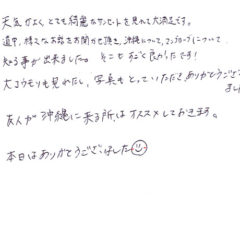 天気がよく、とても綺麗なサンセットを見れて大満足です。
道中、様々なお話をお聞かせ頂き、沖縄について、マングローブについて
知る事が出来ました。そこもすごく良かったです!
大コウモリも見れたし、写真もとっていただきありがとうござい
ました
友人が沖縄に来る際はオススメしておきます。
本日はありがとうございました